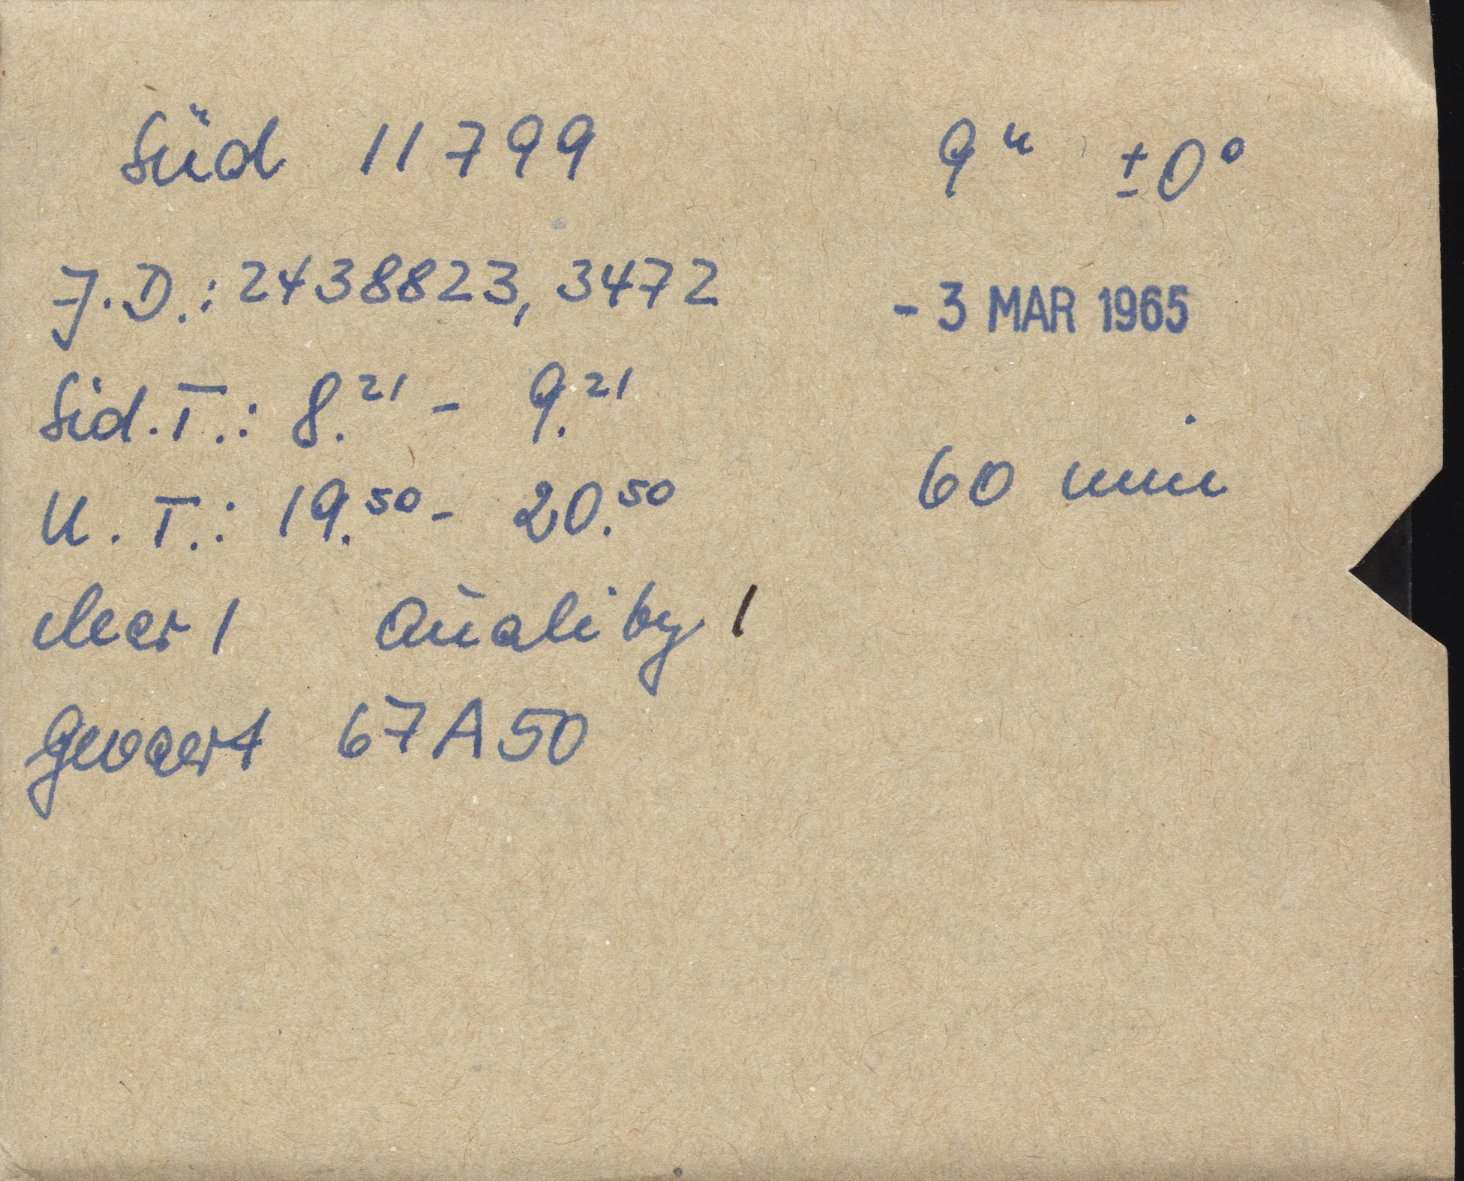 Süd 11799 9ʰ ±0°
J.D.: 2438823,3472 - 3 MAR 1965
Sid.T.: 8.²¹ - 9.²¹
U.T.: 19.⁵⁰ - 20.⁵⁰ 60 min
clear 1 Quality 1
Gevaert 67A50